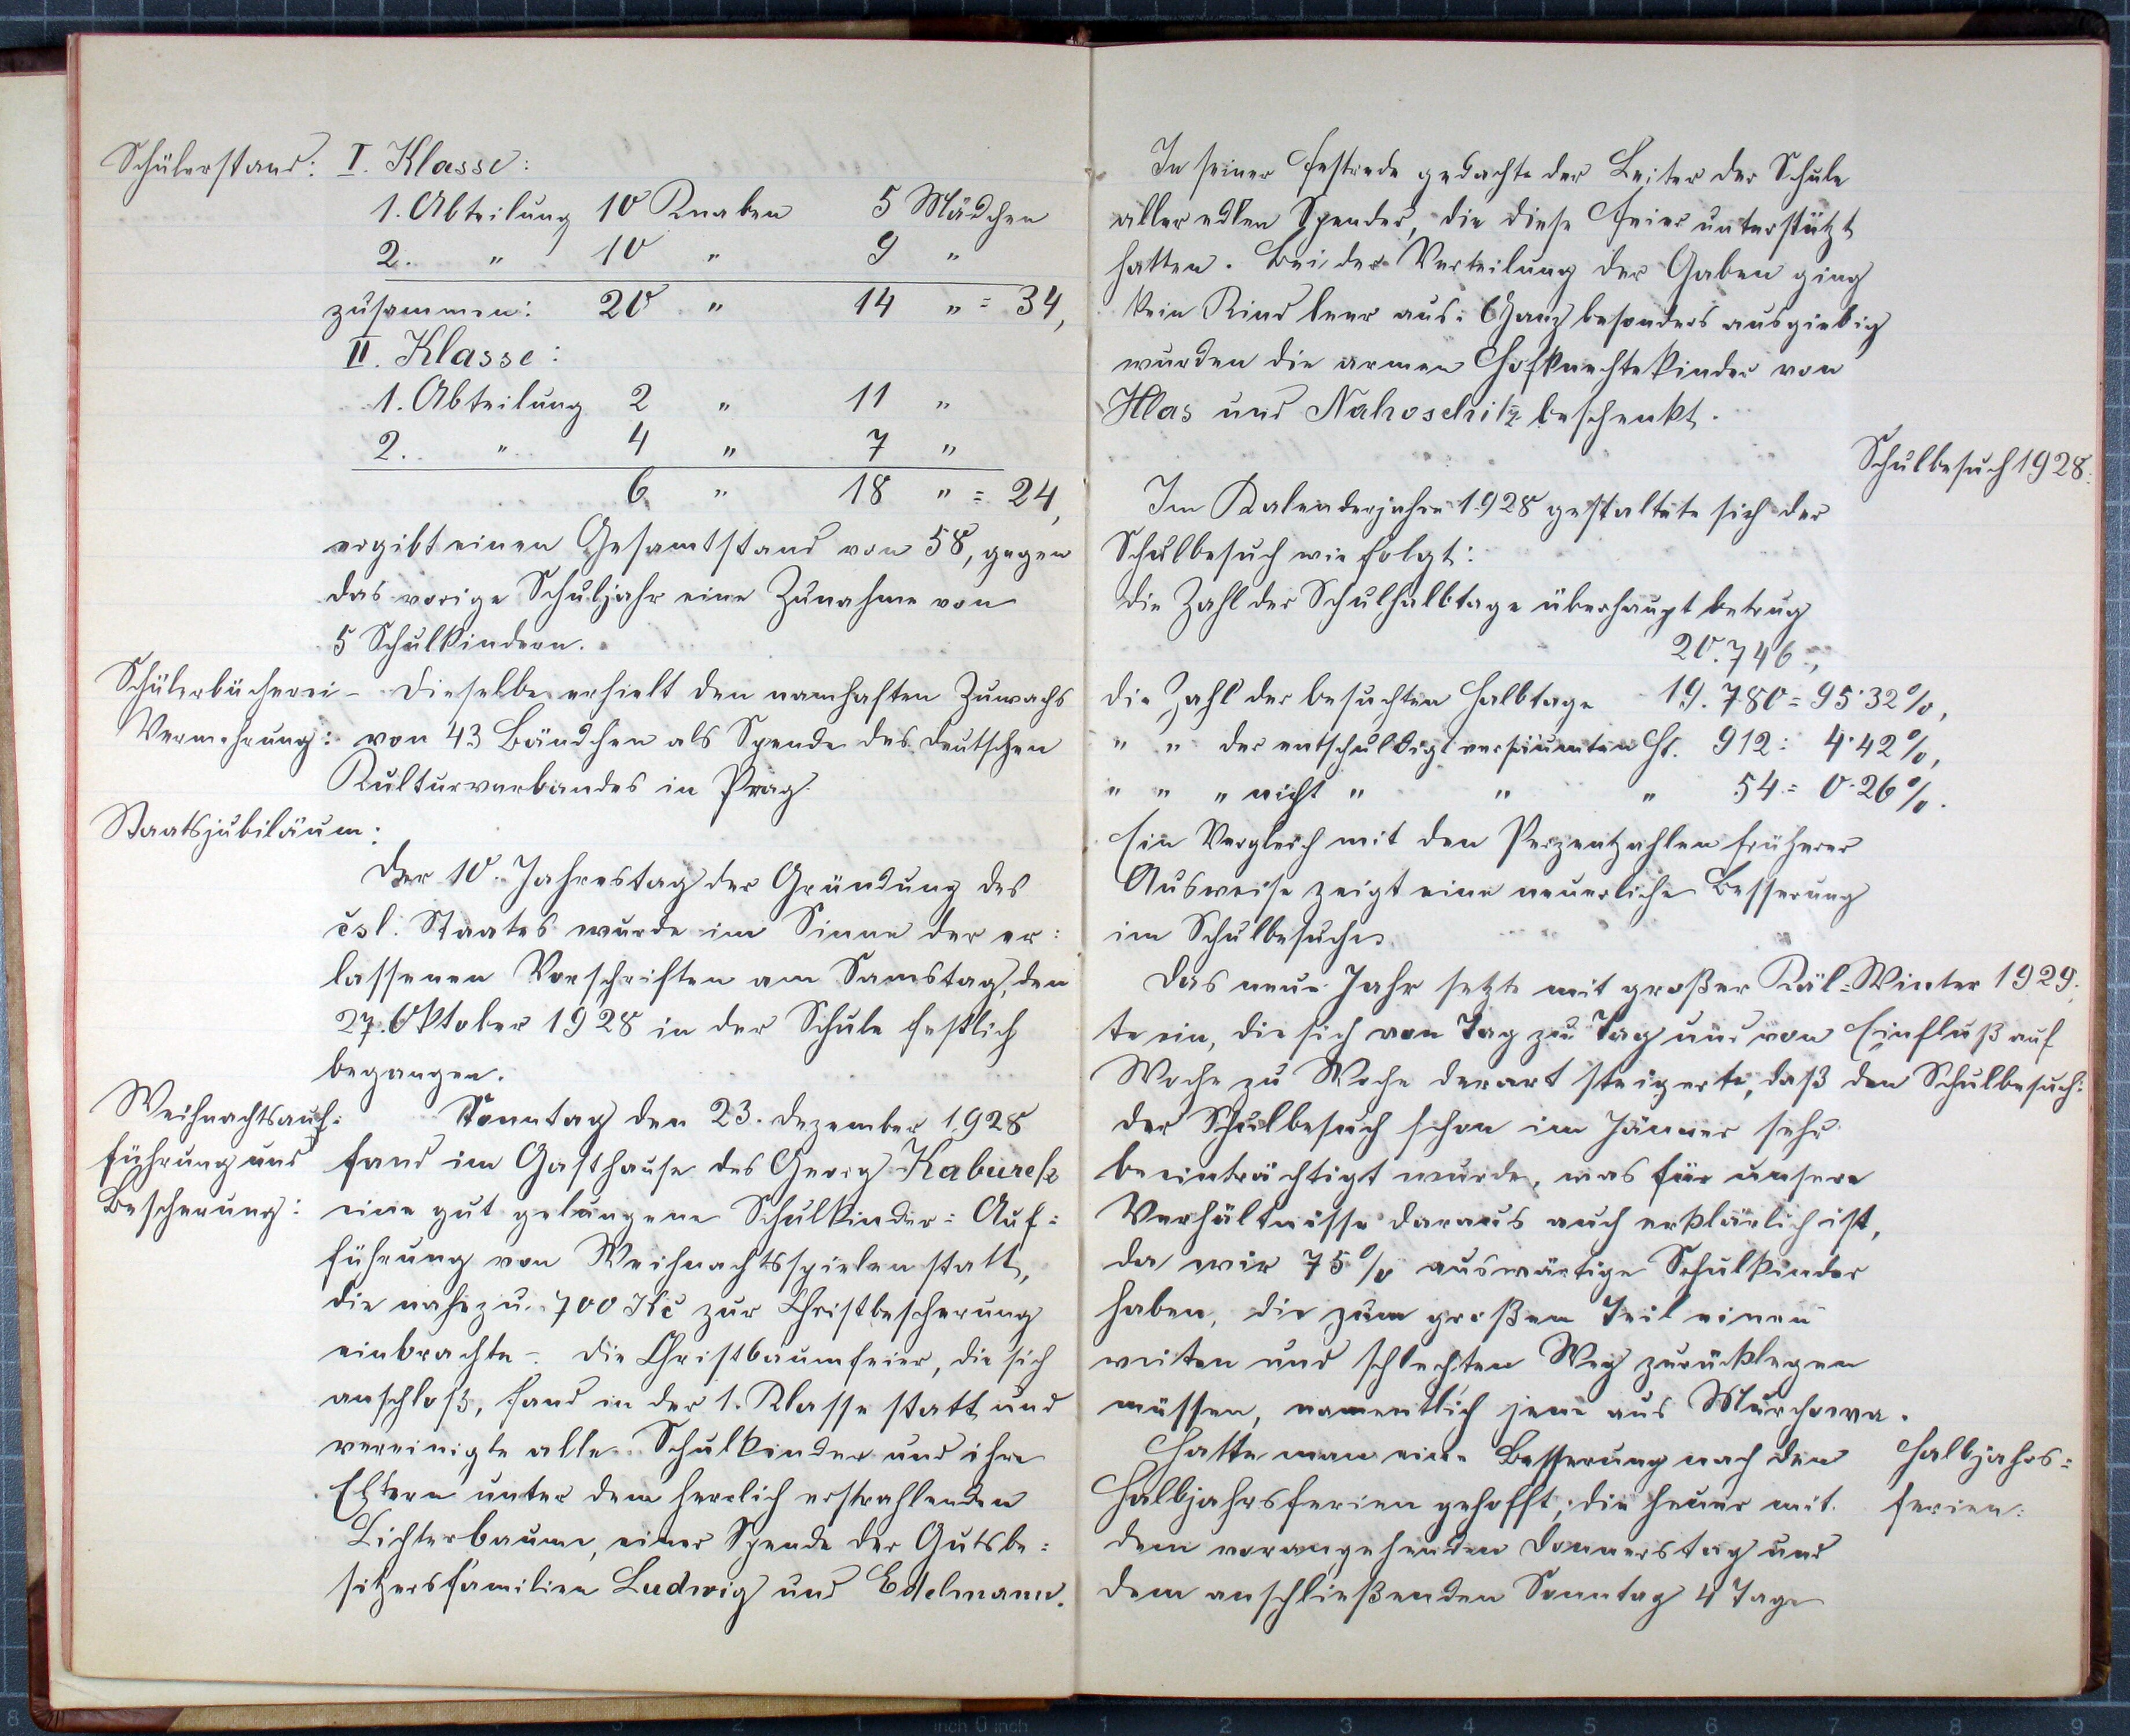 Schülerstand: I. Klasse:
1. Abteilung 10 Knaben 5 Mädchen
2. " 10 " 9 "
zusammen: 20 " 14 " = 34,
II. Klasse:
1. Abteilung 2 " 11 "
2. " 4 " 7 "
6 " 18 " = 24,
ergibt einen Gesamtstand von 58, gegen
das vorige Schuljahr eine Zunahme von
5 Schulkindern.
Schülerbücherei - Dieselbe erhielt den namhaften Zuwachs
Vermehrung: von 43 Bändchen als Spende des deutschen
Kulturverbandes in Prag.
Staatsjubiläum:
Der 10. Jahrestag der Gründung des
čsl. Staates wurde im Sinne der er=
lassenen Vorschriften am Samstag, den
27. Oktober 1928 in der Schule festlich
begangen.
Weihnachtsauf= Sonntag den 23. Dezember 1928
führung und fand im Gasthause des Georg
Bescherung: eine gut gelungene Schulkinder= Auf=
führung von Weihnachtsspielen statt,
die nahezu 700 Kč zur Christbescherung
einbrachte. Die Christbaumfeier, die sich
anschloß, fand in der 1. Klasse statt und
vereinigte alle Schulkinder und ihre
Eltern unter dem herrlich erstrahlenden
Lichterbaume, einer Spende der Gutsbe=
sitzersfamilien Ludwig und Edelmann.
In seiner Festrede gedachte der Leiter der Schule
aller edlen Spender, die diese Feier unterstützt
hatten. Bei der Verteilung der Gaben ging
kein Kind leer aus. Ganz besonders ausgiebig
wurden die armen Hofknechtekinder von
Hlas und Nahoschitz beschenkt.
Schulbesuch 1928:
Im Kalenderjahre 1928 gestaltete sich der
Schulbesuch wie folgt:
die Zahl der Schulhalbtage überhaupt betrug
20.746,
die Zahl der besuchten Halbtage 19.780 = 95·32%,
" " der entschuldigt versäumten Ht. 912 = 4·42%,
" " " nicht " " " 54 = 0·26%.
Ein Vergleich mit den Perzentzahlen früherer
Ausweise zeigt eine neuerliche Besserung
im Schulbesuche.
Das neue Jahr setzte mit großer Käl= Winter 1929.
te ein, die sich von Tag zu Tag und von Einfluß auf
Woche zu Woche derart steigerte, daß den Schulbesuch:
der Schulbesuch schon im Jänner sehr
beeinträchtigt wurde, was für unsere
Verhältnisse daraus auch erklärlich ist,
da wir 75% auswärtige Schulkinder
haben, die zum großen Teil einen
weiten und schlechten Weg zurücklegen
müssen, namentlich jene aus Murchowa.
Hatte man eine Besserung nach den Halbjahrs=
Halbjahrsferien gehofft, die heuer mit ferien:
dem vorangehenden Donnerstag und
dem anschließenden Sonntag 4 Tage
8 3 2 1 inch 0 inch 1 2 3 4 5 6 7 8 9